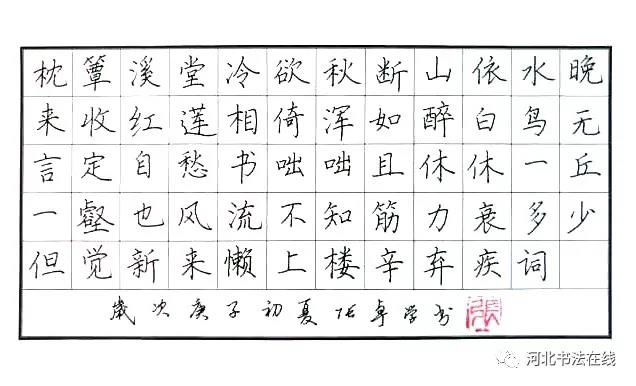 枕簟溪堂冷欲秋断山依水晚
来收红莲相倚浑如醉白鸟无
言定自愁书咄咄且休休一丘
一壑也风流不知筋力衰多少
但觉新来懒上楼辛弃疾词
歲次庚子初夏张卓学书
张
河北书法在线